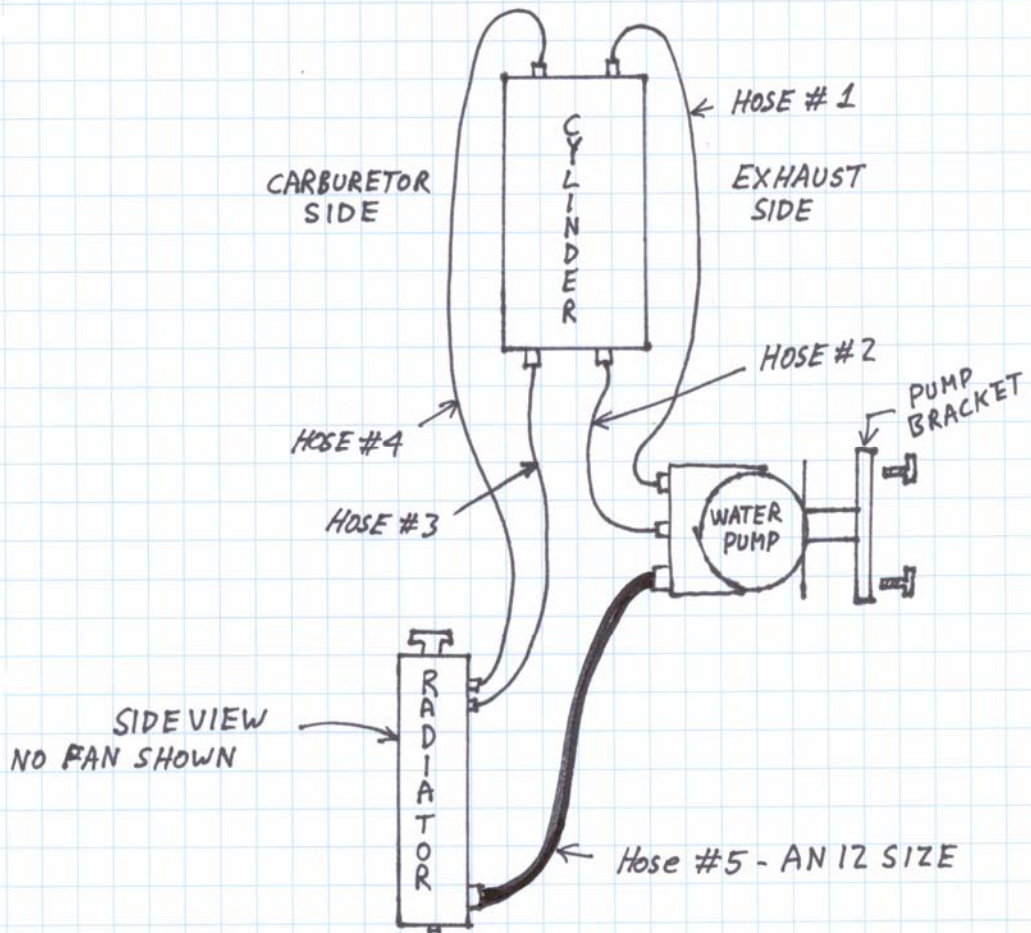 HOSE # 1
CYLINDER
CARBURETOR
SIDE
EXHAUST
SIDE
HOSE #2
PUMP
BRACKET
HOSE #4
HOSE #3
WATER
PUMP
RADIATOR
SIDE VIEW
NO FAN SHOWN
Hose #5 - AN 12 SIZE